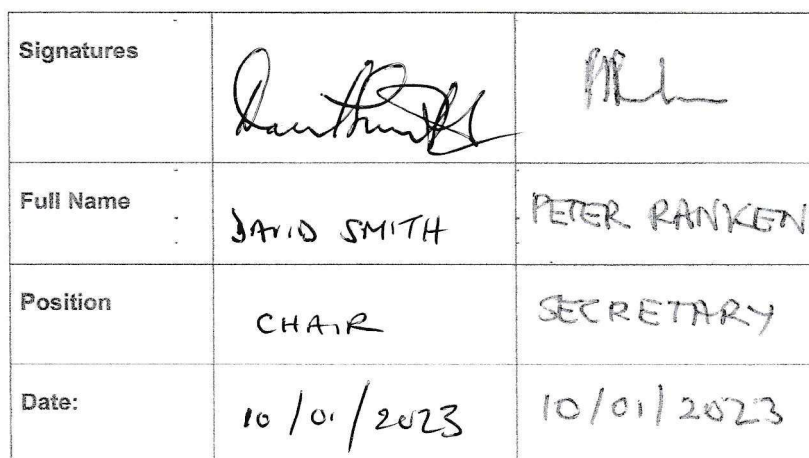 Signatures
Full Name DAVID SMITH PETER RANKEN
Position CHAIR SECRETARY
Date: 10/01/2023 10/01/2023